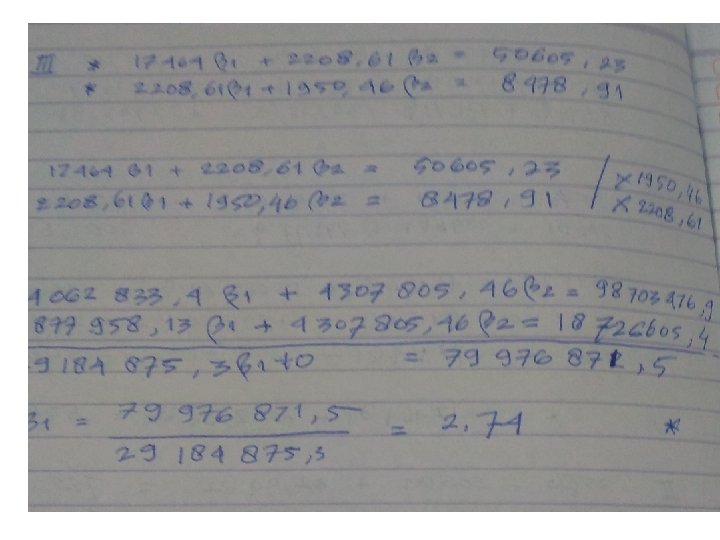 III * 17464 β1 + 2208,61 β2 = 50605,23
* 2208,61β1 + 1950,46 β2 = 8478,91
17464 β1 + 2208,61 β2 = 50605,23 | x 1950,46
2208,61 β1 + 1950,46 β2 = 8478,91 | x 2208,61
4062 833,4 β1 + 4307 805,46 β2 = 98703476,9
877 958,13 β1 + 4307805,46 β2 = 18 726605,4
9 184 875,3β1 + 0 = 79 976 871,5
β1 = 79 976 871,5 / 29 184 875,3 = 2.74 *